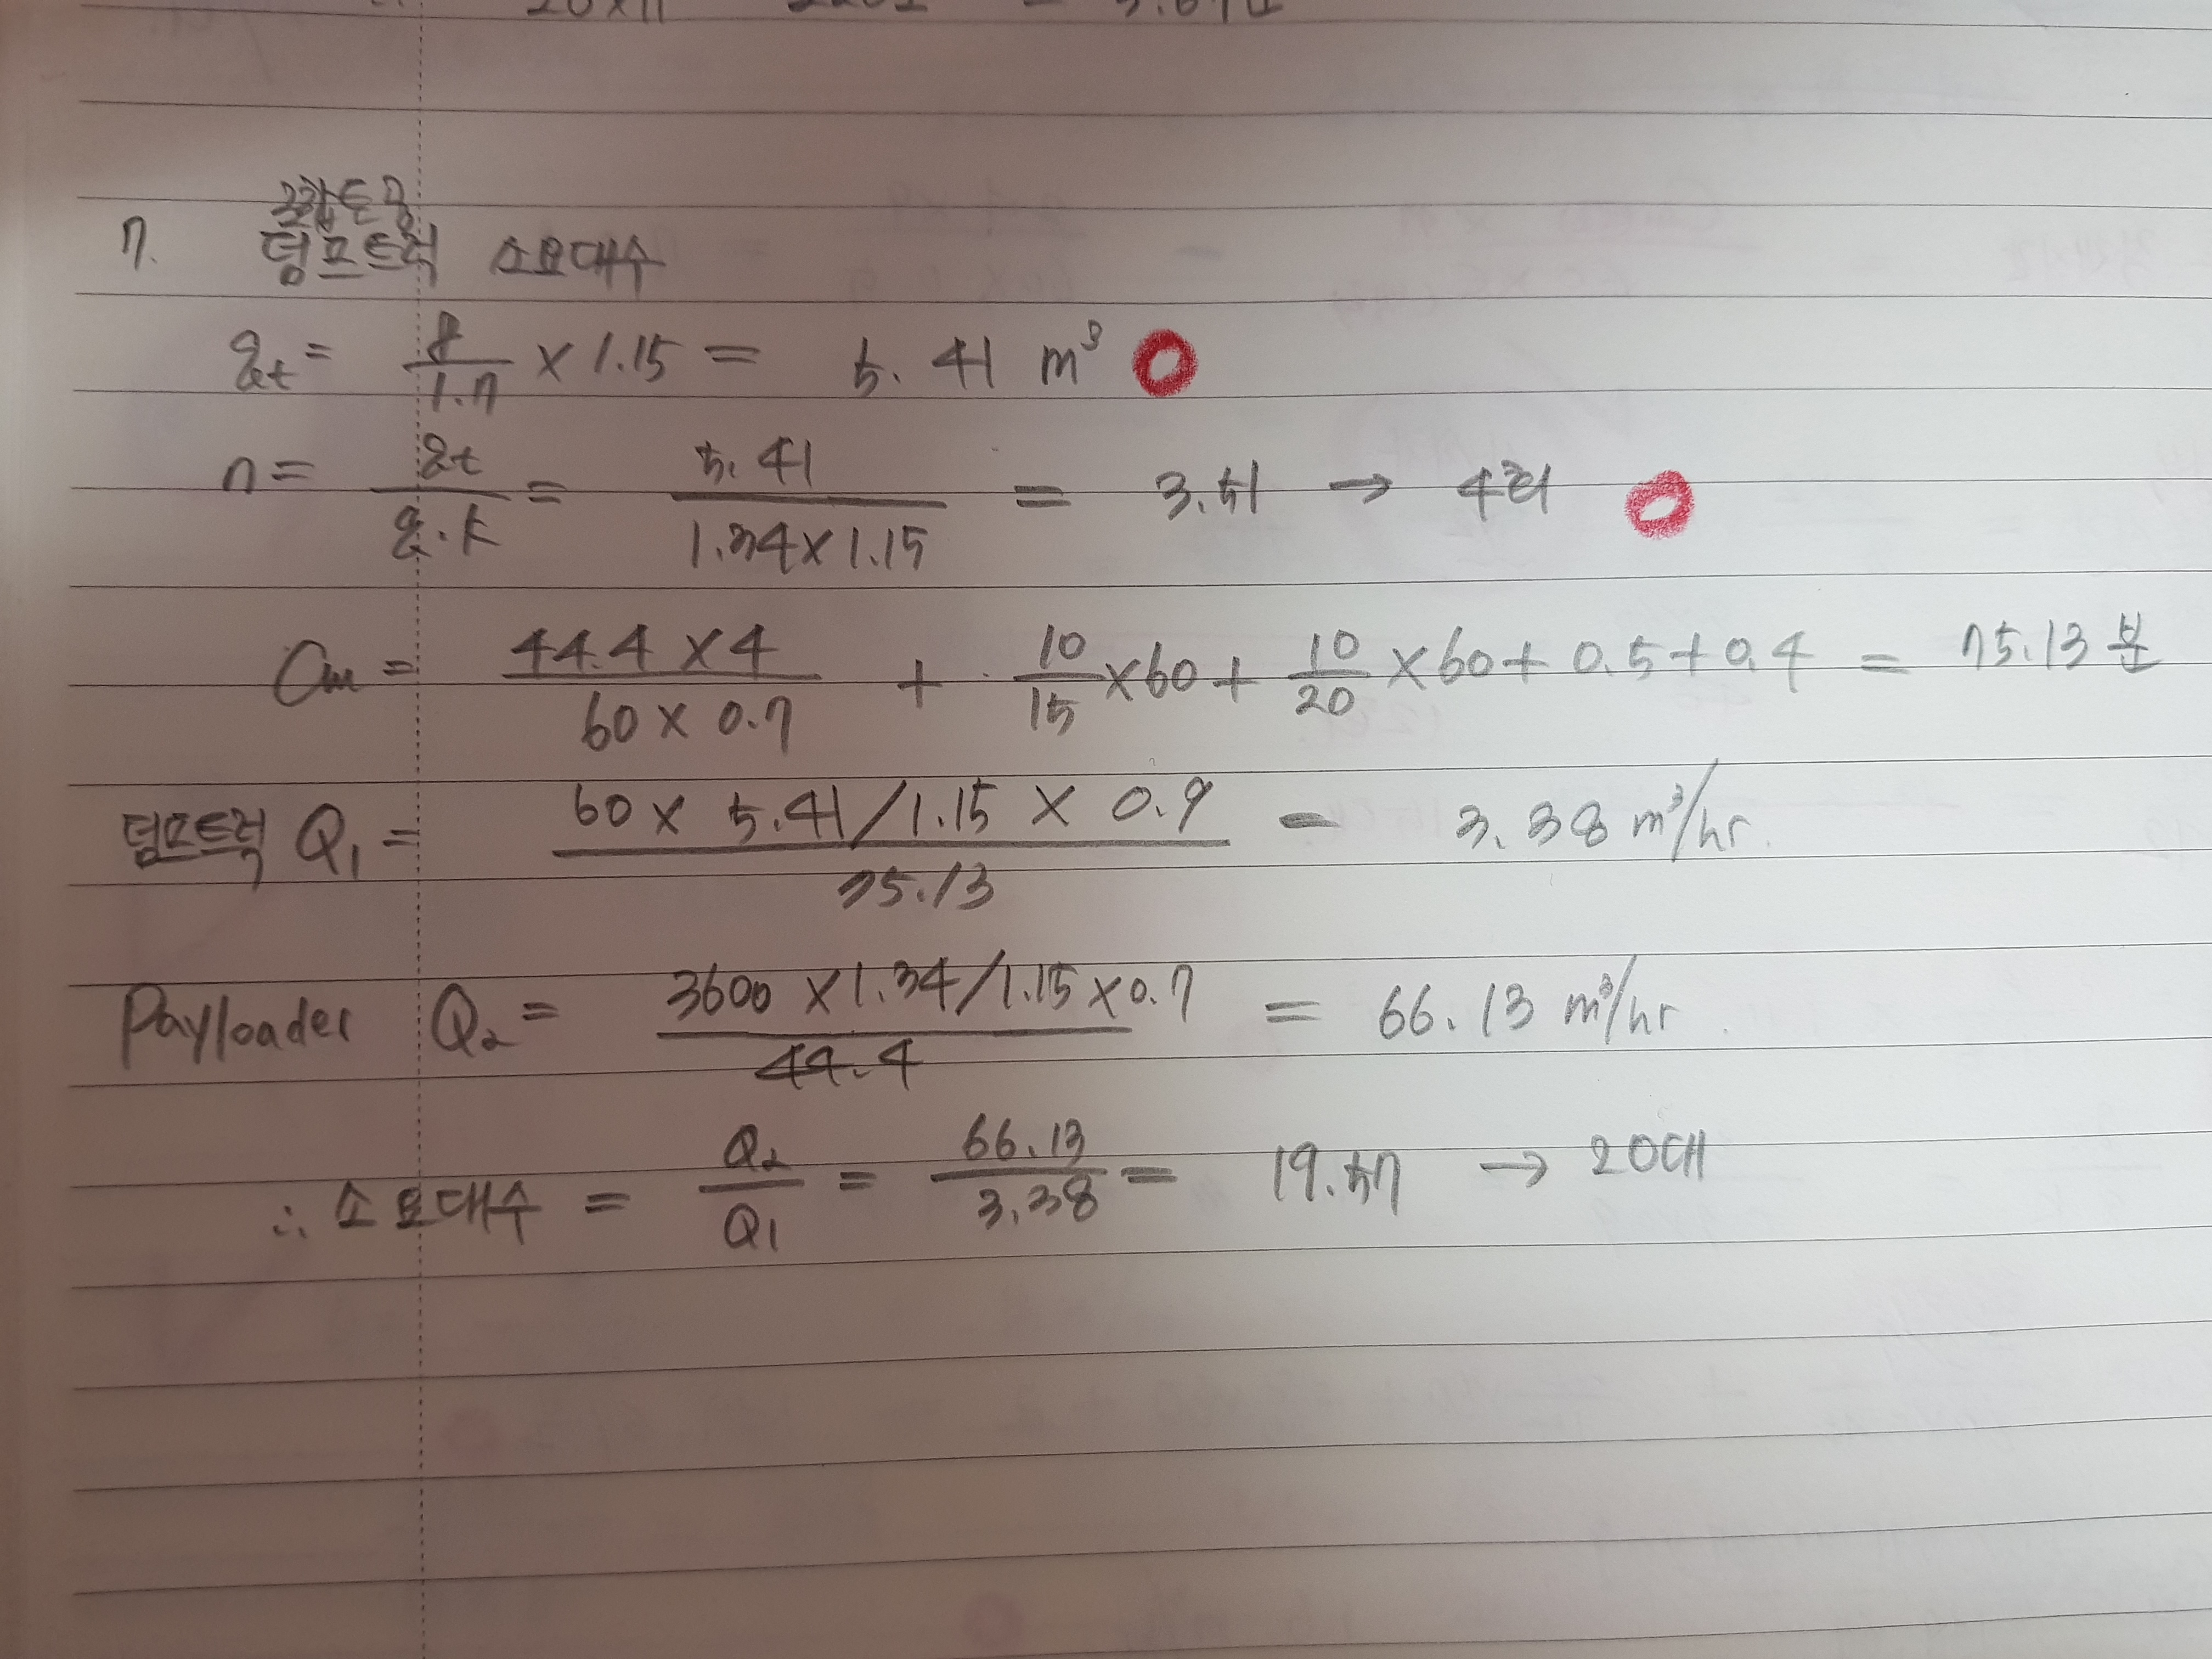 혼합토공
7. 덤프트럭 소요대수
qt = 8/1.7 × 1.15 = 5.41 m³
n = qt/q·k = 5.41/1.34×1.15 = 3.51 → 4회
Cm = 44.4 × 4/60 × 0.7 + 10/15 × 60 + 10/20 × 60 + 0.5 + 0.4 = 75.13 분
덤프트럭 Q₁ = 60 × 5.41/1.15 × 0.9/75.13 = 3.38 m³/hr.
Payloader Q₂ = 3600 × 1.34/1.15 × 0.7/44.4 = 66.13 m³/hr.
∴ 소요대수 = Q₂/Q₁ = 66.13/3.38 = 19.57 → 20대